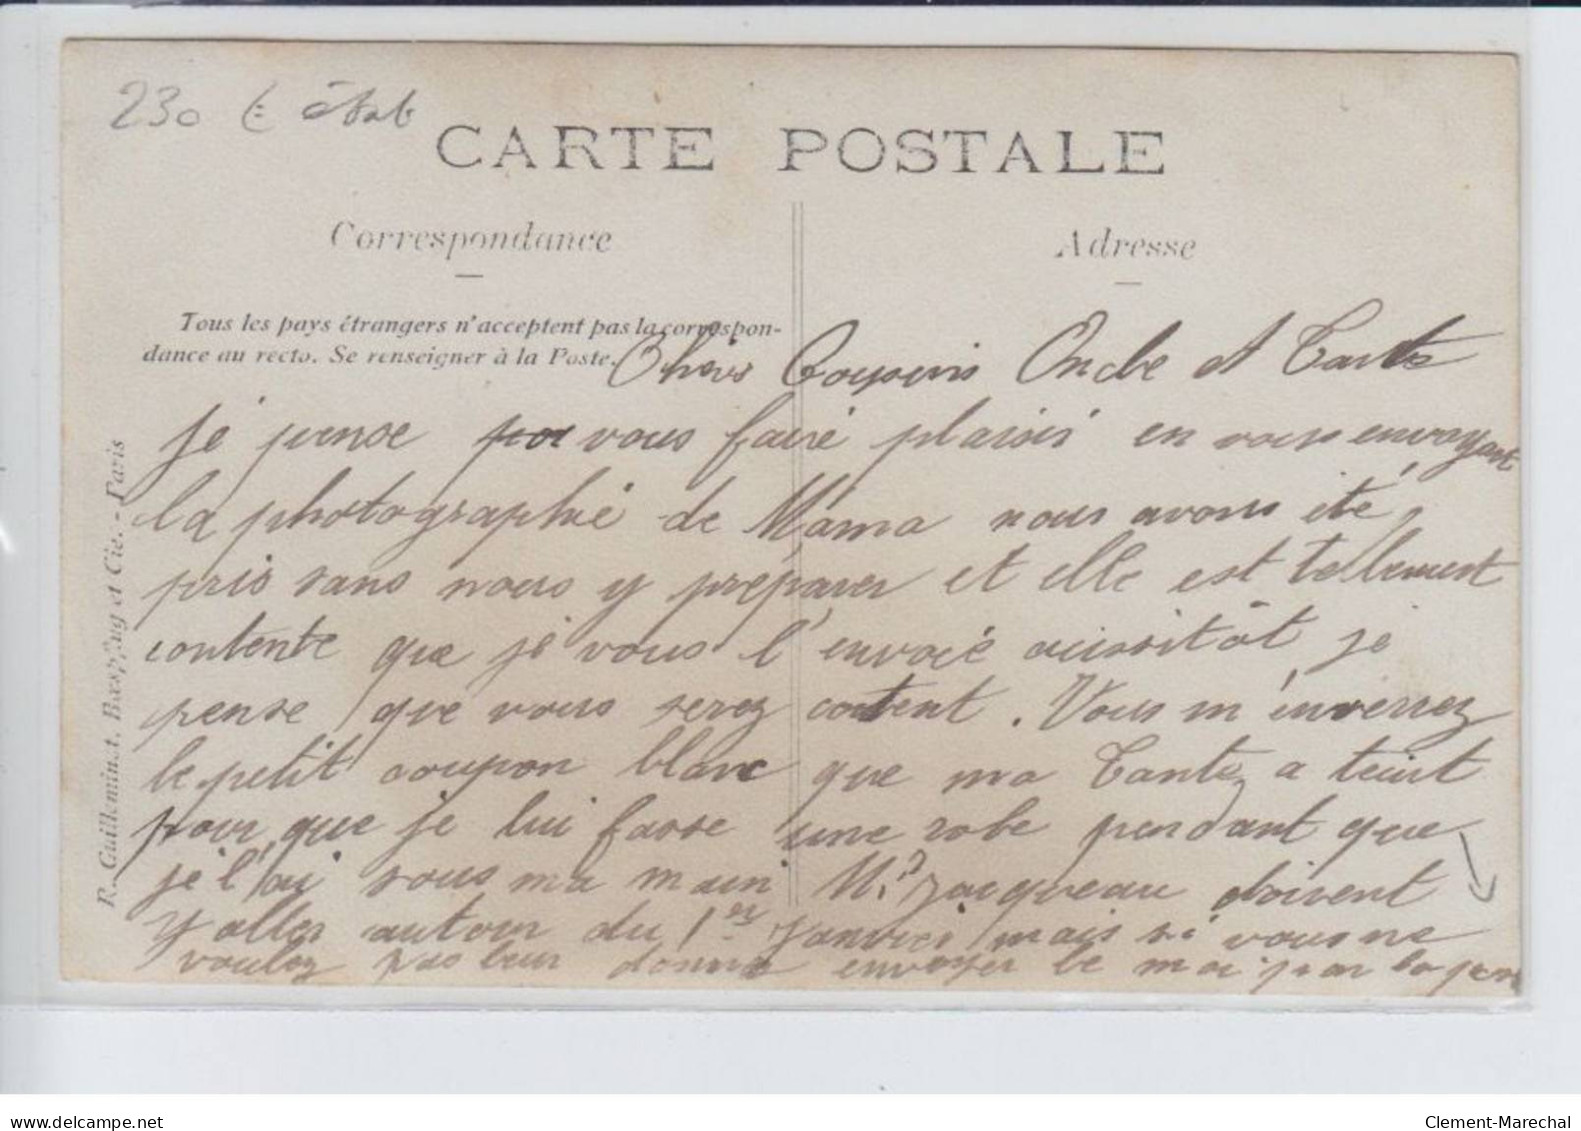 230 € état
CARTE POSTALE
Correspondance
Adresse
Tous les pays étrangers n'acceptent pas la correspon-
dance au recto. Se renseigner à la Poste.
R. Guilleminot, Bœspflug et Cie. - Paris
Chers Cousins Oncle et Tante
je pense vous faire plaisir en vous envoyant
la photographie de Mama nous avons été
pris sans nous y préparer et elle est tellement
contente que je vous l'envoie aussitôt je
pense que vous serez content. Vous m'enverrez
le petit coupon blanc que ma Tante a teint
pour que je lui fasse une robe pendant que
je l'ai sous ma main Mr Jacqueau doivent
y aller autour du 1er Janvier mais si vous ne
voulez pas leur donne envoyer le moi par la
Clement-Marechal
www.delcampe.net